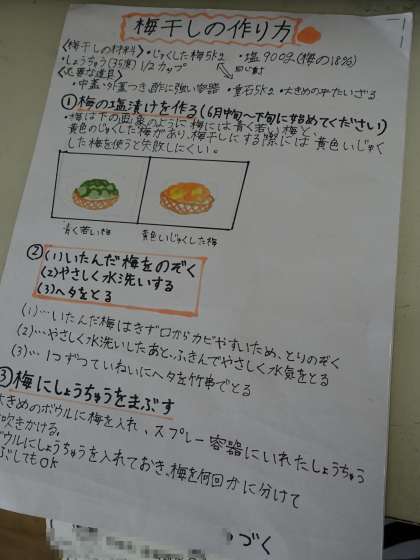 梅干しの作り方
〈梅干しの材料〉・じゅくした梅5k2 ・塩900分(梅の18%)
・しょうちゅう(35度)1/2カップ 同じ重さ
〈必要な道具〉
・中蓋・外蓋つき酢に強い容器 ・重石5k2 ・大きめの平たいざる
①梅の塩漬けを作る(6月中旬〜下旬に始めてください)
・梅は下の画像のように梅には青く若い梅と、
黄色のじゅくした梅があり、梅干しにする際には黄色いじゅく
した梅を使うと失敗しにくい。
青く若い梅 黄色いじゅくした梅
② (1)いたんだ梅をのぞく
(2)やさしく水洗いする
(3)ヘタをとる
(1)…いたんだ梅はきず口からカビやすいため、とりのぞく
(2)…やさしく水洗いしたあと、ふきんでやさしく水気をとる
(3)…1つずつていねいにヘタを竹串でとる
③梅にしょうちゅうをまぶす
大きめのボウルに梅を入れ、スプレー容器にいれたしょうちゅう
吹きかける。
ボウルにしょうちゅうを入れておき、梅を何回かに分けて
ぶしてもOK
づく